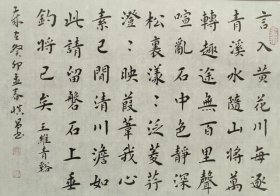 言入黄花川每逐
青溪水隨山將萬
轉趣途無百里聲
喧亂石中色静深
松裏漾〻泛菱荇
澄〻映葭葦我心
素已閒清川澹如
此請留磐石上垂
釣將已矣 王維青谿
癸卯孟春